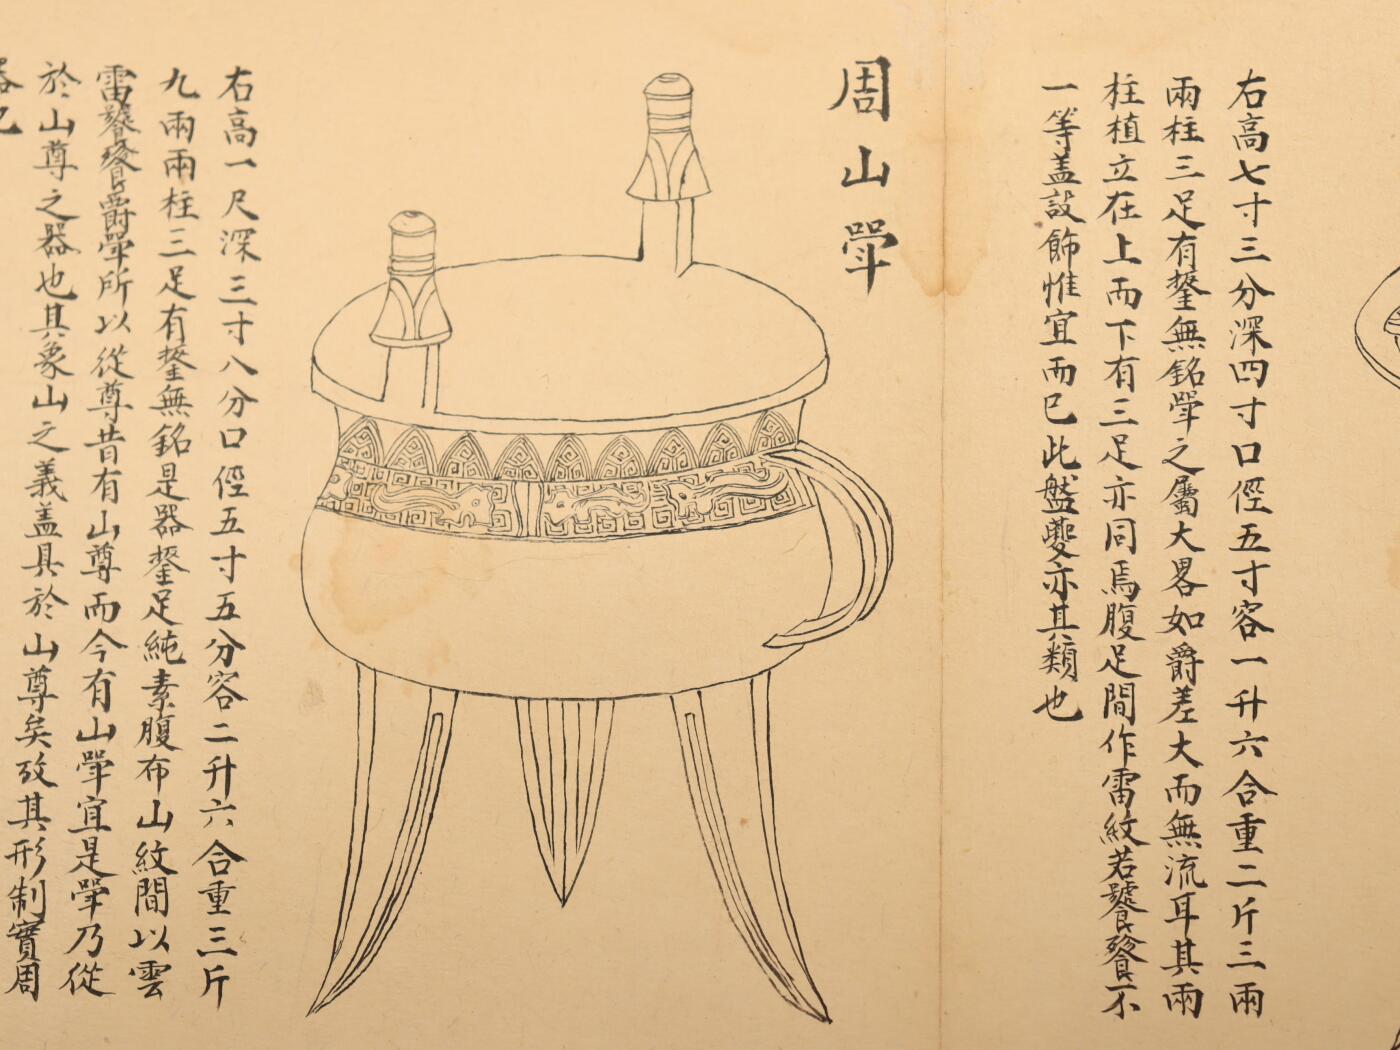 右高七寸三分深四寸口徑五寸容一升六合重二斤三兩
兩柱三足有鋬無銘斝之屬大畧如爵差大而無流耳其兩
柱植立在上而下有三足亦同焉腹足間作雷紋若饕餮不
一等盖設飾惟宜而已此盤夔亦其類也
周山斝
右高一尺深三寸八分口徑五寸五分容二升六合重三斤
九兩兩柱三足有鋬無銘是器鋬足純素腹布山紋間以雲
雷饕餮爵斝所以從尊昔有山尊而今有山斝宜是斝乃從
於山尊之器也其象山之義盖具於山尊矣攷其形制實周
器也